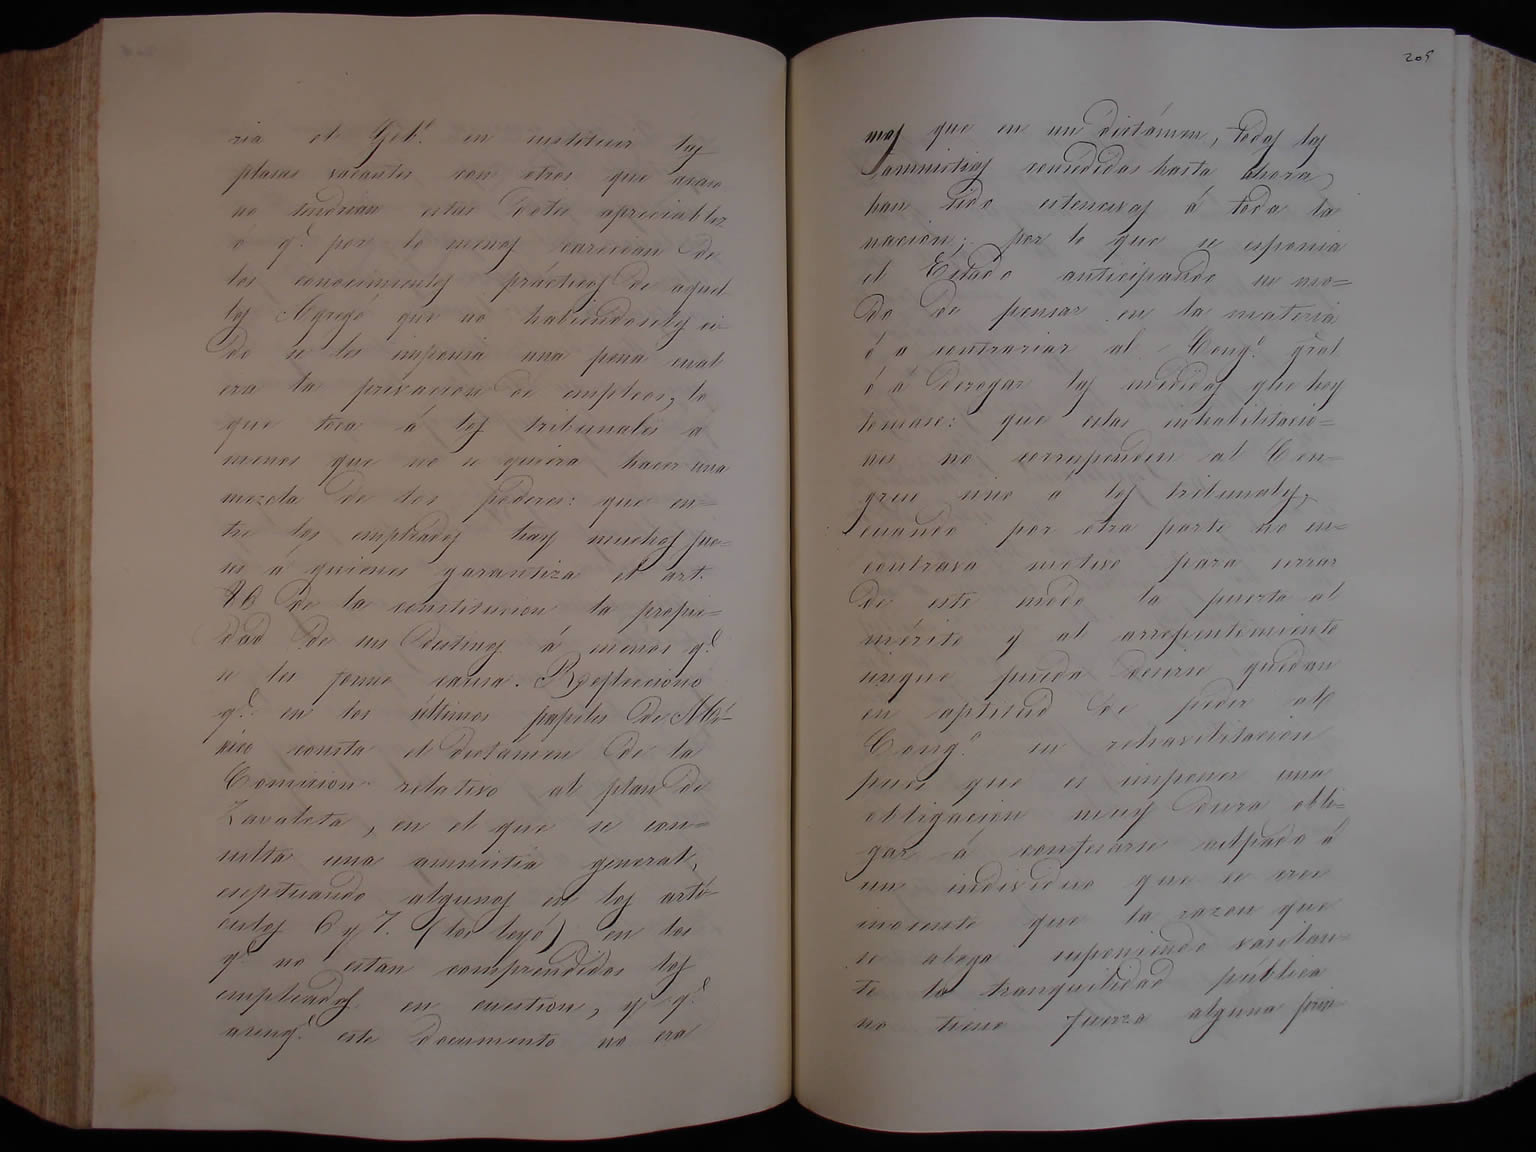 ria el Gob.º en instituir las
plasas vacantes con otros que acaso
no tendrian estas dotes apreciables
ó q.º por lo menos carecian de
los conocimientos prácticos de aquel
los Agregó que no habiendoseles oi
do se les imponia una pena cual
era la privacion de empleos, lo
que toca á los tribunales a
menos que no se quiera hacer una
mezcla de los poderes: que en=
tre los empleados hay muchos jue=
ces á quienes garantiza el art.
de la constitucion la propie=
dád de sus destinos á menos q.e
se les forme causa. Refleccionó
q.e en los últimos papeles de Mé=
xico consta el dictamen de la
Comision relativo al plan de
Zavaleta, en el que se con=
sulta una amnistia general,
eseptuando algunos en los artí
culos 6 y 7. (los leyó) en los
q.e no estan comprendidos los
empleados en cuestion, y q.e
aunq.e este documento no era
205
mas que en un dictámen, todas las
amnistias consedidas hasta ahora,
han sido estensivas á toda la
nacion; por lo que se esponia
el Estado anticipando su mo=
do de pensar en la materia
ó a contrariar al Cong.º gral
ó á derogar las medidas que hoy
tomase: que estas inhabilitacio=
nes no corresponden al Con=
greso sino a los tribunales,
cuando por otra parte no en=
contrava motivo para serrar
de este módo la puerta al
mérito y al arrepentimiento
sinque pueda decirse quedan
en aptitud de pedir al
Cong.º su rehavilitacion
pues que es imponer una
obligacion muy dura obli=
gar á confesarse culpado á
un individuo que se cree
inocente que la razon que
se alega suponiendo vasilan=
te la tranquilidad pública
no tiene fuerza alguna